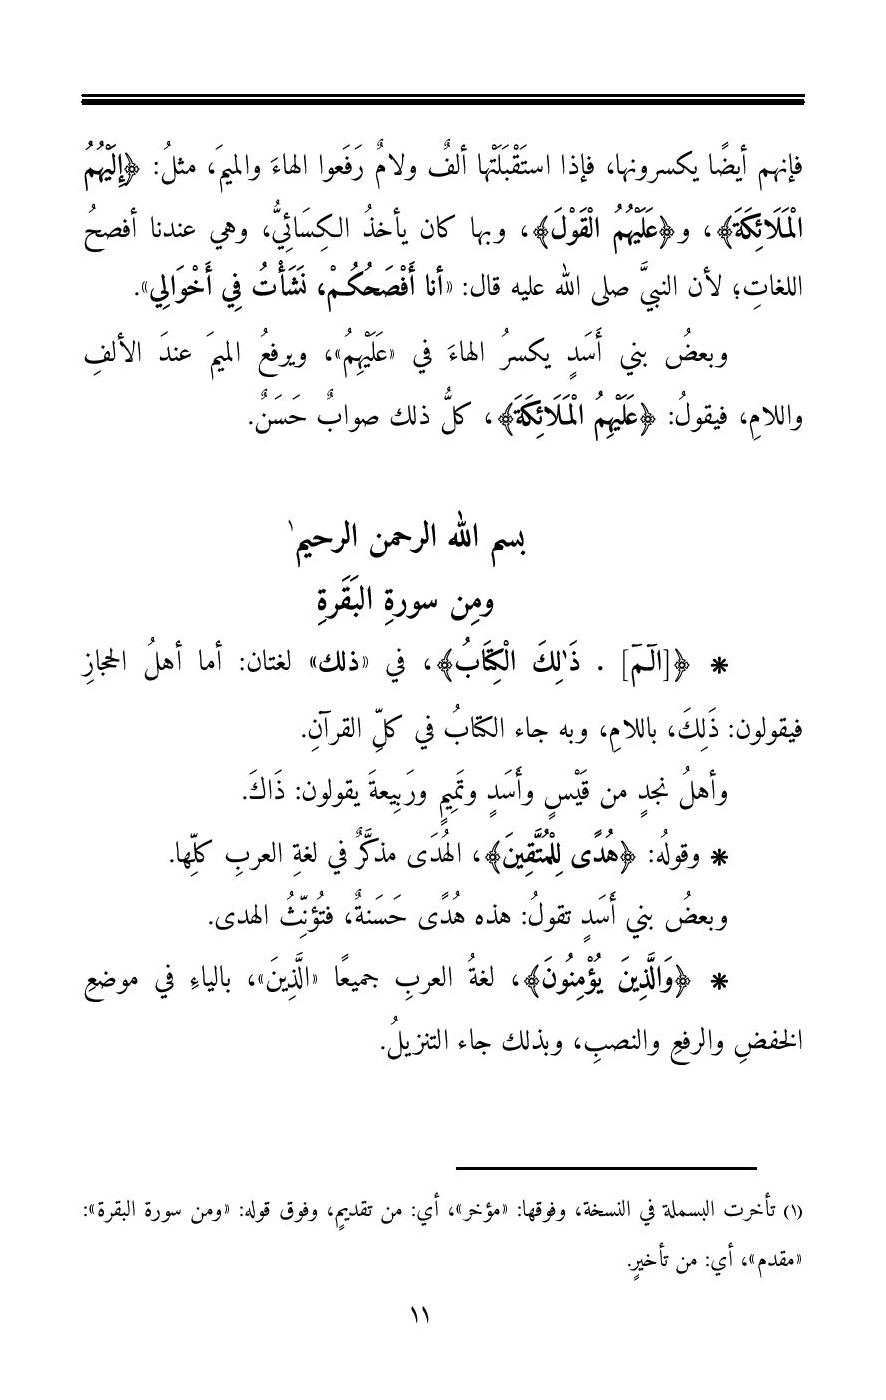 فإنهم أيضًا يكسرونها، فإذا استَقْبَلَتْها ألفٌ ولامٌ رَفَعوا الهاءَ والميمَ، مثلُ: ﴿إِلَيْهُمُ
الْمَلَائِكَةَ﴾، و﴿عَلَيْهُمُ الْقَوْلَ﴾، وبها كان يأخذُ الكِسَائِيُّ، وهي عندنا أفصحُ
اللغاتِ؛ لأن النبيَّ صلى الله عليه قال: «أنا أَفْصَحُكُمْ، نَشَأْتُ فِي أَخْوَالِي».
وبعضُ بني أَسَدٍ يكسرُ الهاءَ في «عَلَيْهِمُ»، ويرفعُ الميمَ عندَ الألفِ
واللامِ، فيقولُ: ﴿عَلَيْهِمُ الْمَلَائِكَةَ﴾، كلُّ ذلك صوابٌ حَسَنٌ.
بسم الله الرحمن الرحيم١
ومِن سورةِ البَقَرةِ
* ﴿[الٓمٓ] . ذَٰلِكَ الْكِتَابُ﴾، في «ذلك» لغتان: أما أهلُ الحجازِ
فيقولون: ذَلِكَ، باللامِ، وبه جاء الكتابُ في كلِّ القرآنِ.
وأهلُ نجدٍ من قَيْسٍ وأَسَدٍ وتَمِيمٍ ورَبِيعةَ يقولون: ذَاكَ.
* وقولُه: ﴿هُدًى لِلْمُتَّقِينَ﴾، الهُدَى مذكَّرٌ في لغةِ العربِ كلِّها.
وبعضُ بني أَسَدٍ تقولُ: هذه هُدًى حَسَنةٌ، فتُؤنِّثُ الهدى.
* ﴿وَالَّذِينَ يُؤْمِنُونَ﴾، لغةُ العربِ جميعًا «الَّذِينَ»، بالياءِ في موضعِ
الخفضِ والرفعِ والنصبِ، وبذلك جاء التنزيلُ.
(١) تأخرت البسملة في النسخة، وفوقها: «مؤخر»، أي: من تقديمٍ، وفوق قوله: «ومن سورة البقرة»:
«مقدم»، أي: من تأخيرٍ.
١١